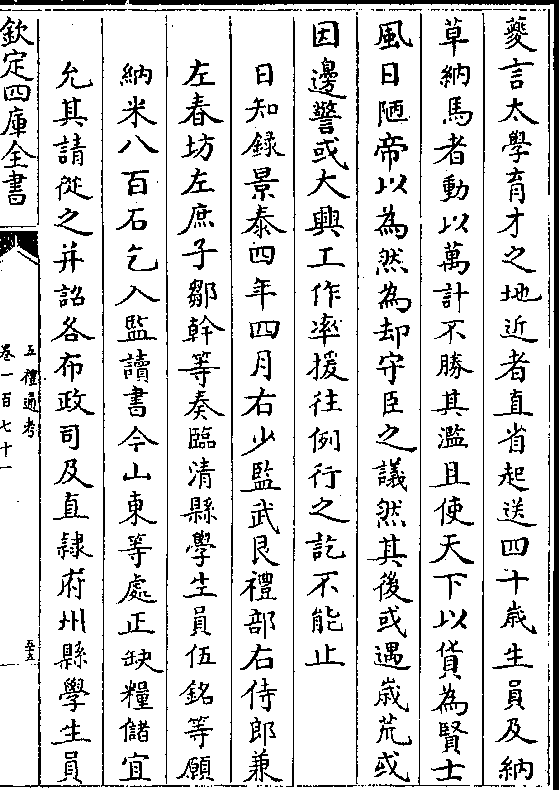 夔言太學育才之地近者直省起送四十歳生員及納
草納馬者動以萬計不勝其濫且使天下以貨為賢士
風日陋帝以為然為却守臣之議然其後或遇歳荒或
因邊警或大興工作率援往例行之訖不能止
日知録景泰四年四月右少監武艮禮部右侍郎兼
左春坊左庶子鄒幹等奏臨清縣學生員伍銘等願
納米八百石乞入監讀書今山東等處正缺糧儲宜
允其請從之并詔各布政司及直隷府州縣學生員
欽定四庫全書
五禮通考
卷一百七十一